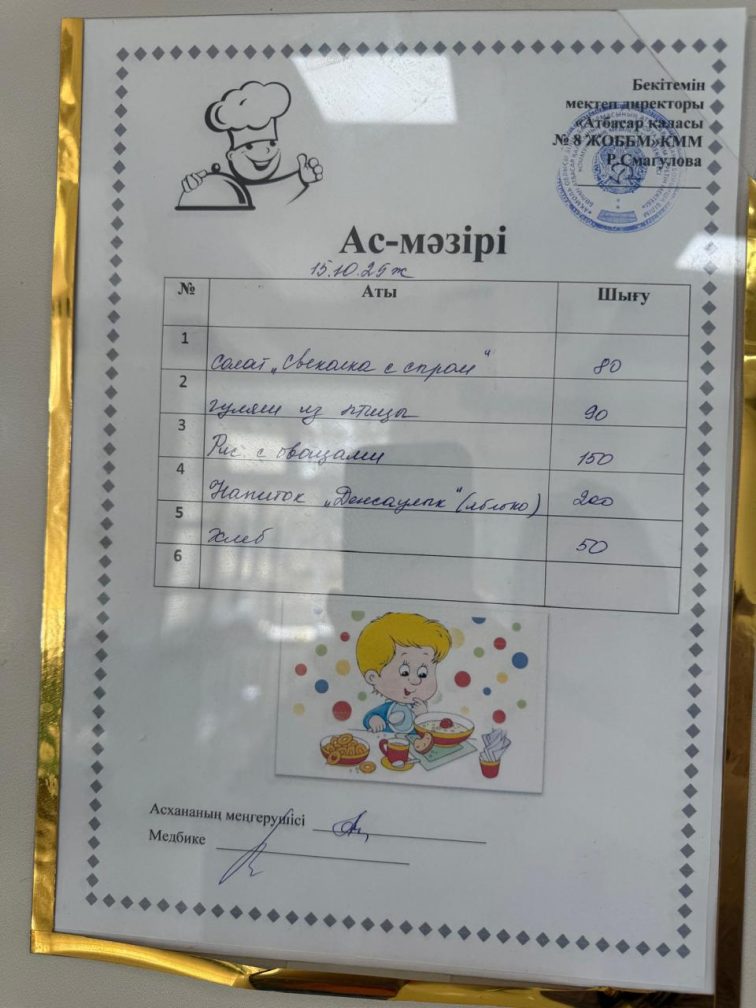 Бекітемін
мектеп директоры
«Атбасар қаласы
№ 8 ЖОББМ» КММ
Р.Смагулова
Ас-мәзірі
15.10.25ж
№ Аты Шығу
1 Салат „Свеколка с сыром" 80
2 гуляш из птицы 90
3 Рис с овощами 150
4 Напиток „Денсаулык" (яблоко) 200
5 Хлеб 50
6
Асхананың меңгерушісі
Медбике